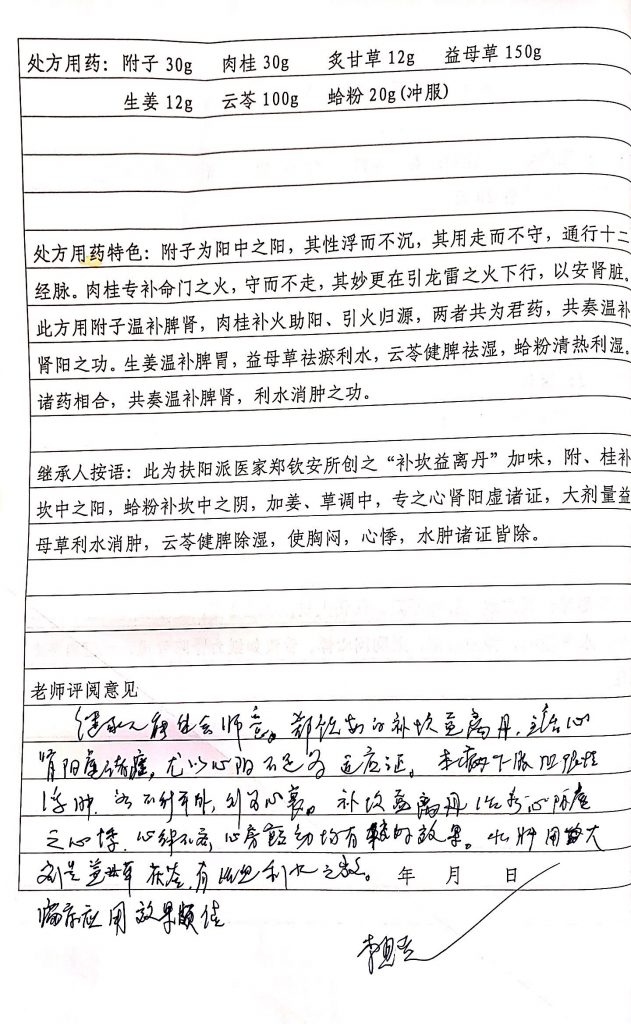 处方用药：附子 30g 肉桂 30g 炙甘草 12g 益母草 150g
生姜 12g 云苓 100g 蛤粉 20g (冲服)
处方用药特色：附子为阳中之阳，其性浮而不沉，其用走而不守，通行十二
经脉。肉桂专补命门之火，守而不走，其妙更在引龙雷之火下行，以安肾脏。
此方用附子温补脾肾，肉桂补火助阳、引火归源，两者共为君药，共奏温补
肾阳之功。生姜温补脾胃，益母草祛瘀利水，云苓健脾祛湿，蛤粉清热利湿。
诸药相合，共奏温补脾肾，利水消肿之功。
继承人按语：此为扶阳派医家郑钦安所创之“补坎益离丹”加味，附、桂补
坎中之阳，蛤粉补坎中之阴，加姜、草调中，专之心肾阳虚诸证，大剂量益
母草利水消肿，云苓健脾除湿，使胸闷，心悸，水肿诸证皆除。
老师评阅意见
继承人能领会师意。郑钦安的补坎益离丹，主治心
肾阳虚诸症，尤以心阳不足为适应证。本病下肢
浮肿 补坎益离丹治疗心阳虚
之心悸，心房颤动均有较好效果。水肿用大
剂量益母草 茯苓，有 利水之效。 年 月 日
临床应用效果颇佳